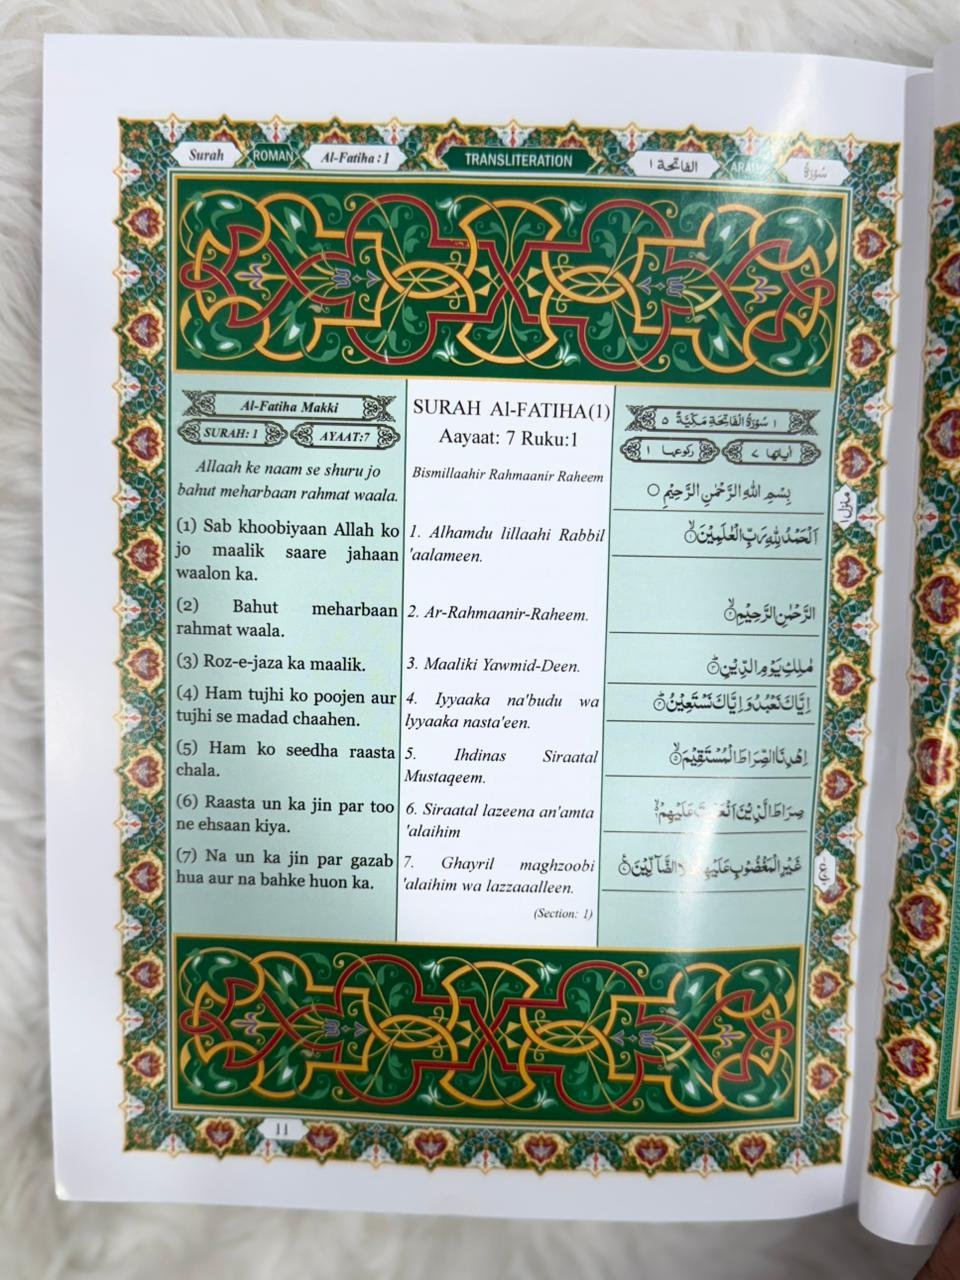 Surah ROMAN Al-Fatiha : 1 TRANSLITERATION الفاتحة ١ سُوْرَةُ
Al-Fatiha Makki
SURAH: 1 AYAAT:7
Allaah ke naam se shuru jo
bahut meharbaan rahmat waala.
(1) Sab khoobiyaan Allah ko
jo maalik saare jahaan
waalon ka.
(2) Bahut meharbaan
rahmat waala.
(3) Roz-e-jaza ka maalik.
(4) Ham tujhi ko poojen aur
tujhi se madad chaahen.
(5) Ham ko seedha raasta
chala.
(6) Raasta un ka jin par too
ne ehsaan kiya.
(7) Na un ka jin par gazab
hua aur na bahke huon ka.
SURAH Al-FATIHA(1)
Aayaat: 7 Ruku:1
Bismillaahir Rahmaanir Raheem
1. Alhamdu lillaahi Rabbil
'aalameen.
2. Ar-Rahmaanir-Raheem.
3. Maaliki Yawmid-Deen.
4. Iyyaaka na'budu wa
lyyaaka nasta'een.
5. Ihdinas Siraatal
Mustaqeem.
6. Siraatal lazeena an'amta
'alaihim
7. Ghayril maghzoobi
'alaihim wa lazzaaalleen.
(Section: 1)
١ سُوْرَةُ الْفَاتِحَةِ مَكِّيَّةٌ ٥
اٰياتها ٧ ركوعها ١
بِسْمِ اللّٰهِ الرَّحْمٰنِ الرَّحِيْمِ ○
اَلْحَمْدُ لِلّٰهِ رَبِّ الْعٰلَمِيْنَ ۙ۱
الرَّحْمٰنِ الرَّحِيْمِ ۙ۲
مٰلِكِ يَوْمِ الدِّيْنِ ؕ۳
اِيَّاكَ نَعْبُدُ وَاِيَّاكَ نَسْتَعِيْنُ ؕ۴
اِهْدِنَا الصِّرَاطَ الْمُسْتَقِيْمَ ۙ۵
صِرَاطَ الَّذِيْنَ اَنْعَمْتَ عَلَيْهِمْ ۙ۬۶
غَيْرِ الْمَغْضُوْبِ عَلَيْهِمْ وَلَا الضَّآلِّيْنَ ۧ۷
منزل ١
11